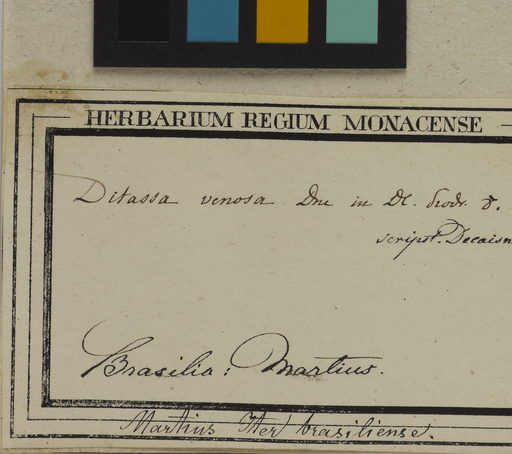 HERBARIUM REGIUM MONACENSE
Ditassa venosa Dne in DC. Prodr. 8.
scripst. Decaisn
Brasilia: Martius.
Martius Iter brasiliense.